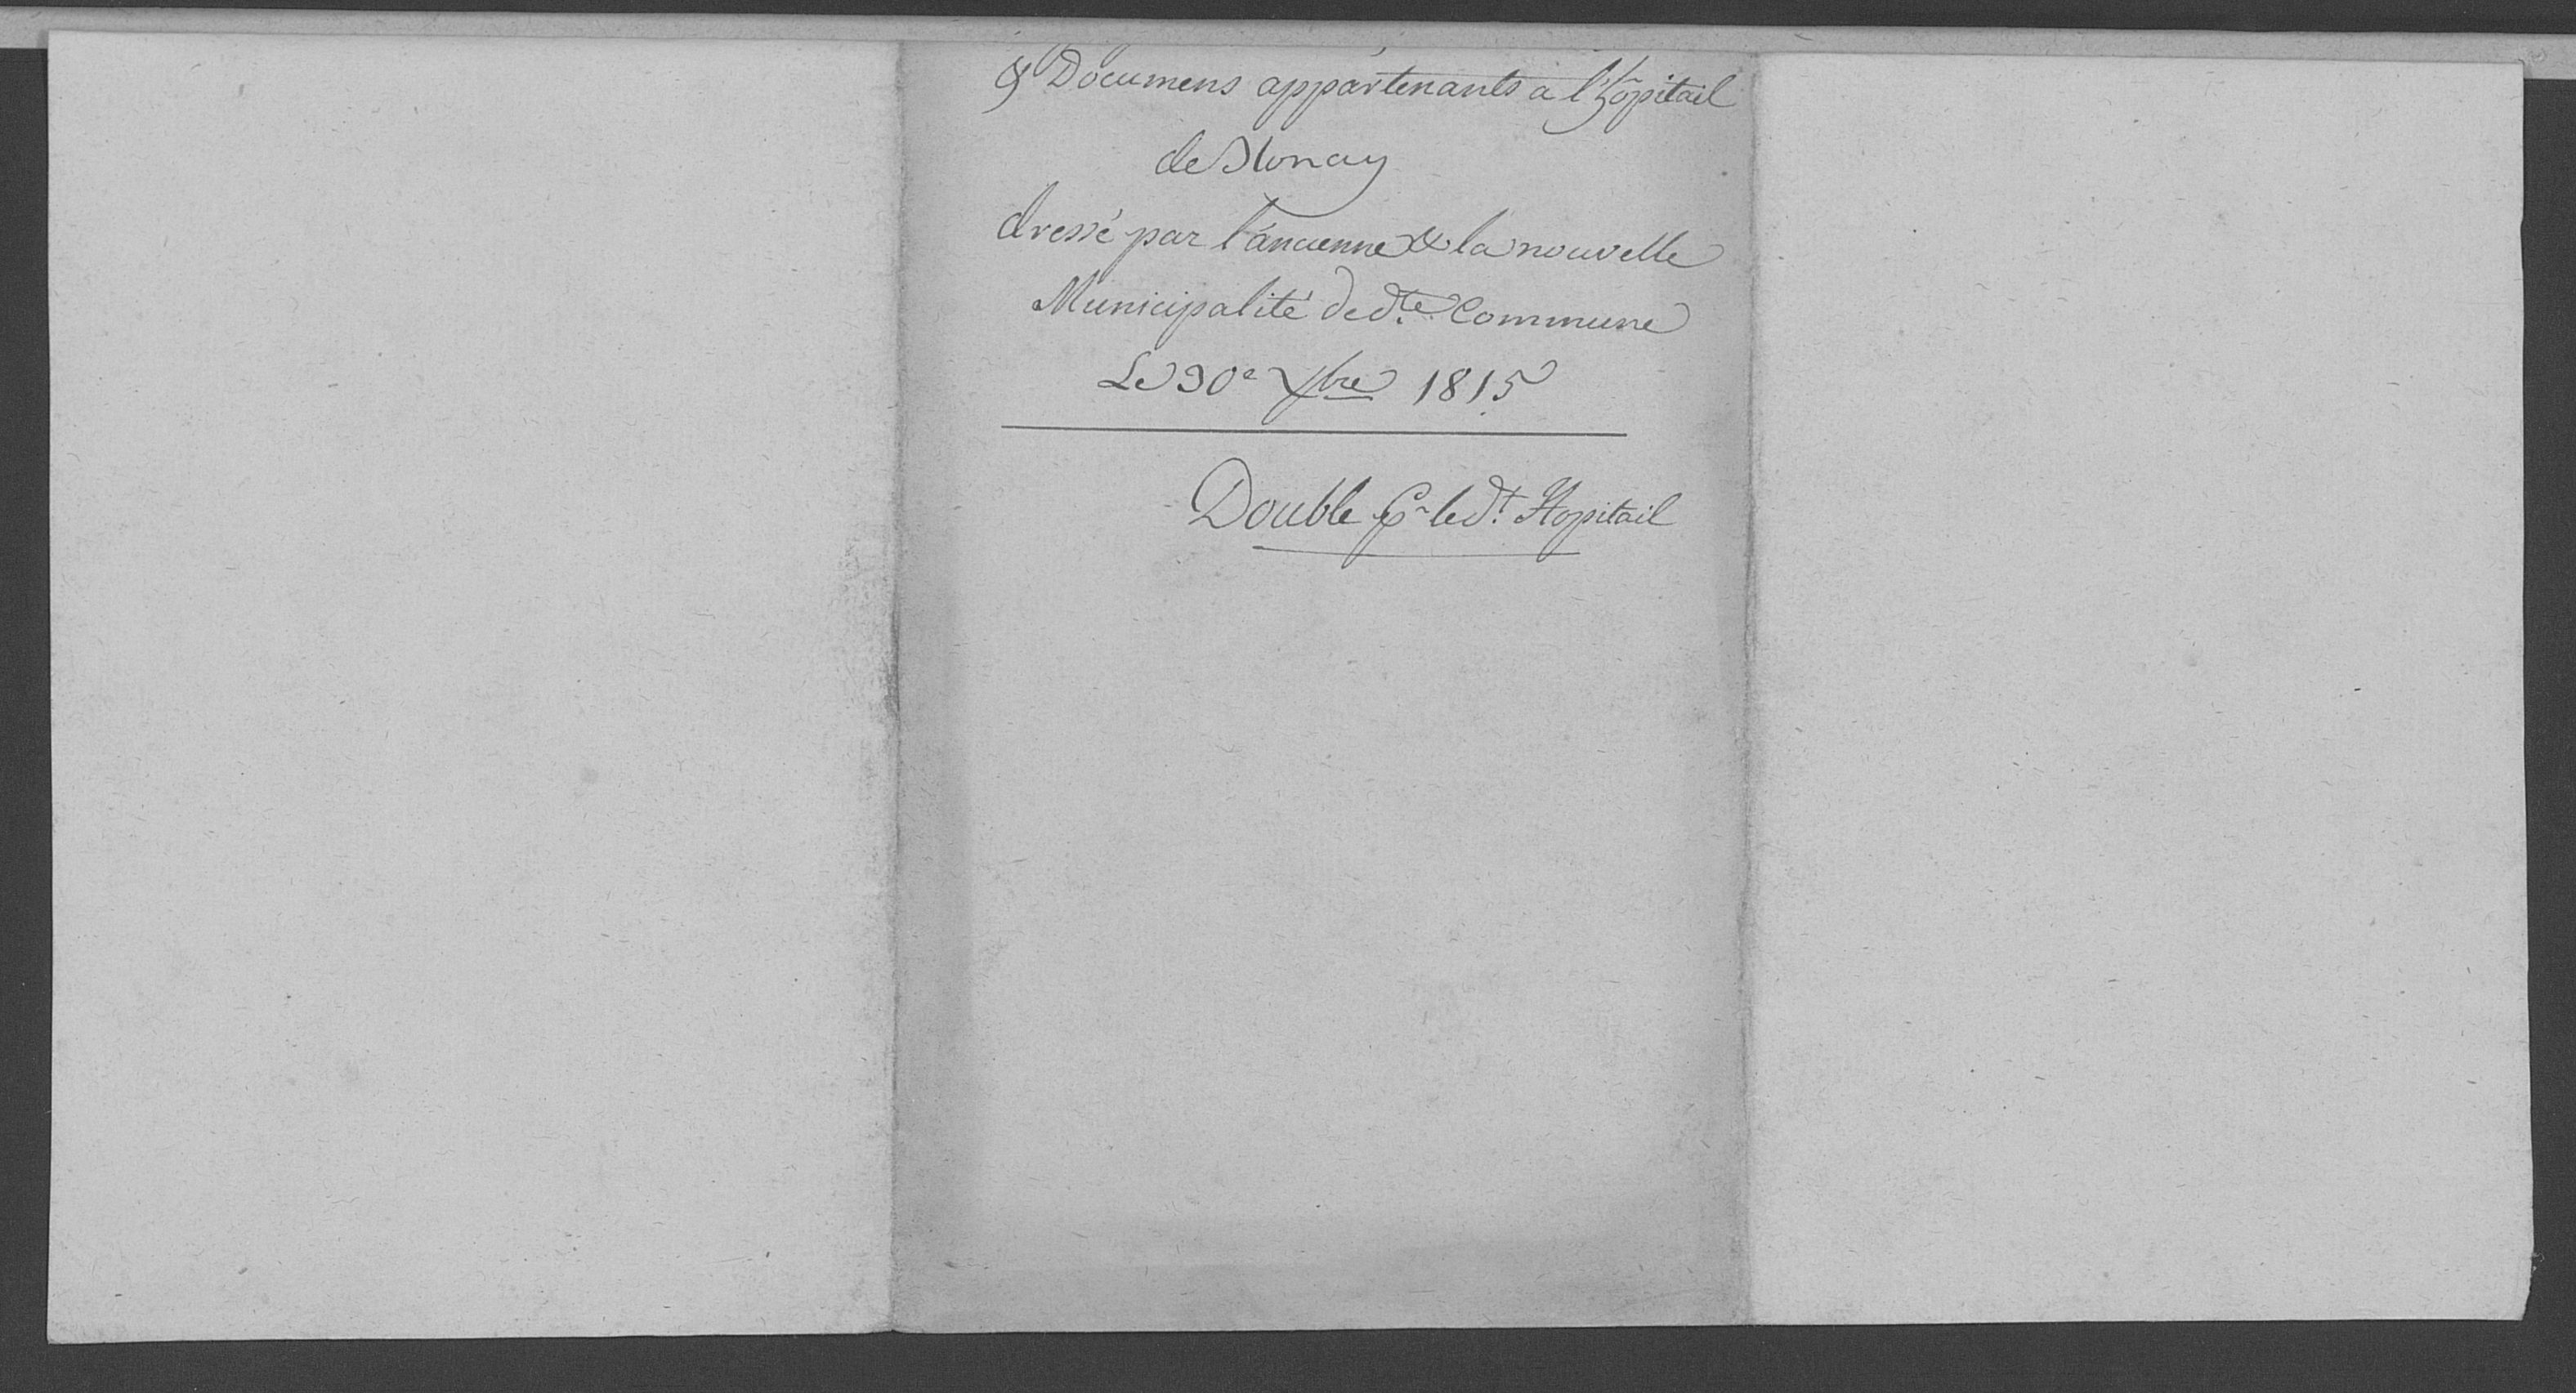 & Documens appartenants a l'hôpitail
de Blonay
dressé par l'ancienne & la nouvelle
Municipalité de dte Commune
Le 30e Xbre 1815
Double pr ledt. Hopitail